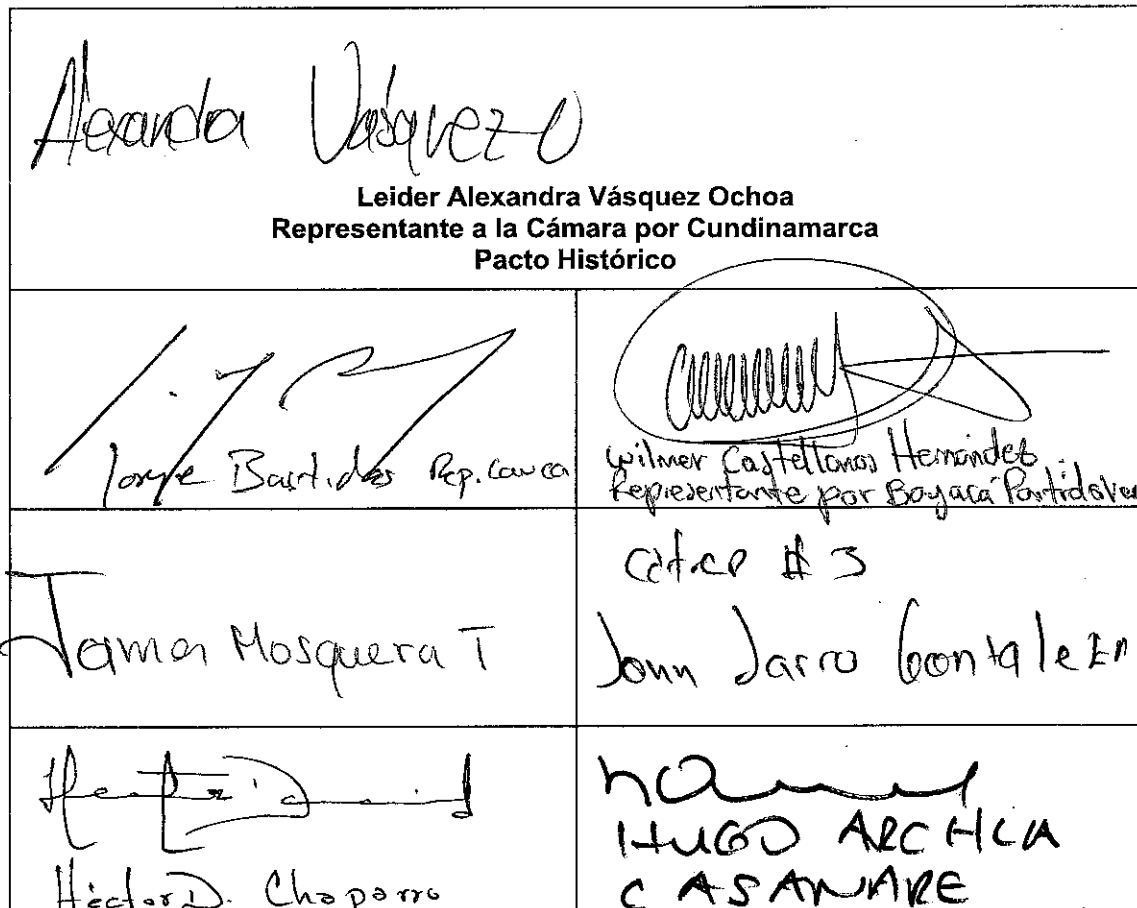 Alexandra Vásquez O
Leider Alexandra Vásquez Ochoa
Representante a la Cámara por Cundinamarca
Pacto Histórico
Jorge Bastidas Rep. Cauca
Wilmer Castellanos Hernández
Representante por Boyacá Partido Ver
James Mosquera T
Citrep # 3
John Jairo Gonzalez
Héctor D. Chaparro
HUGO ARCHILA
CASANARE